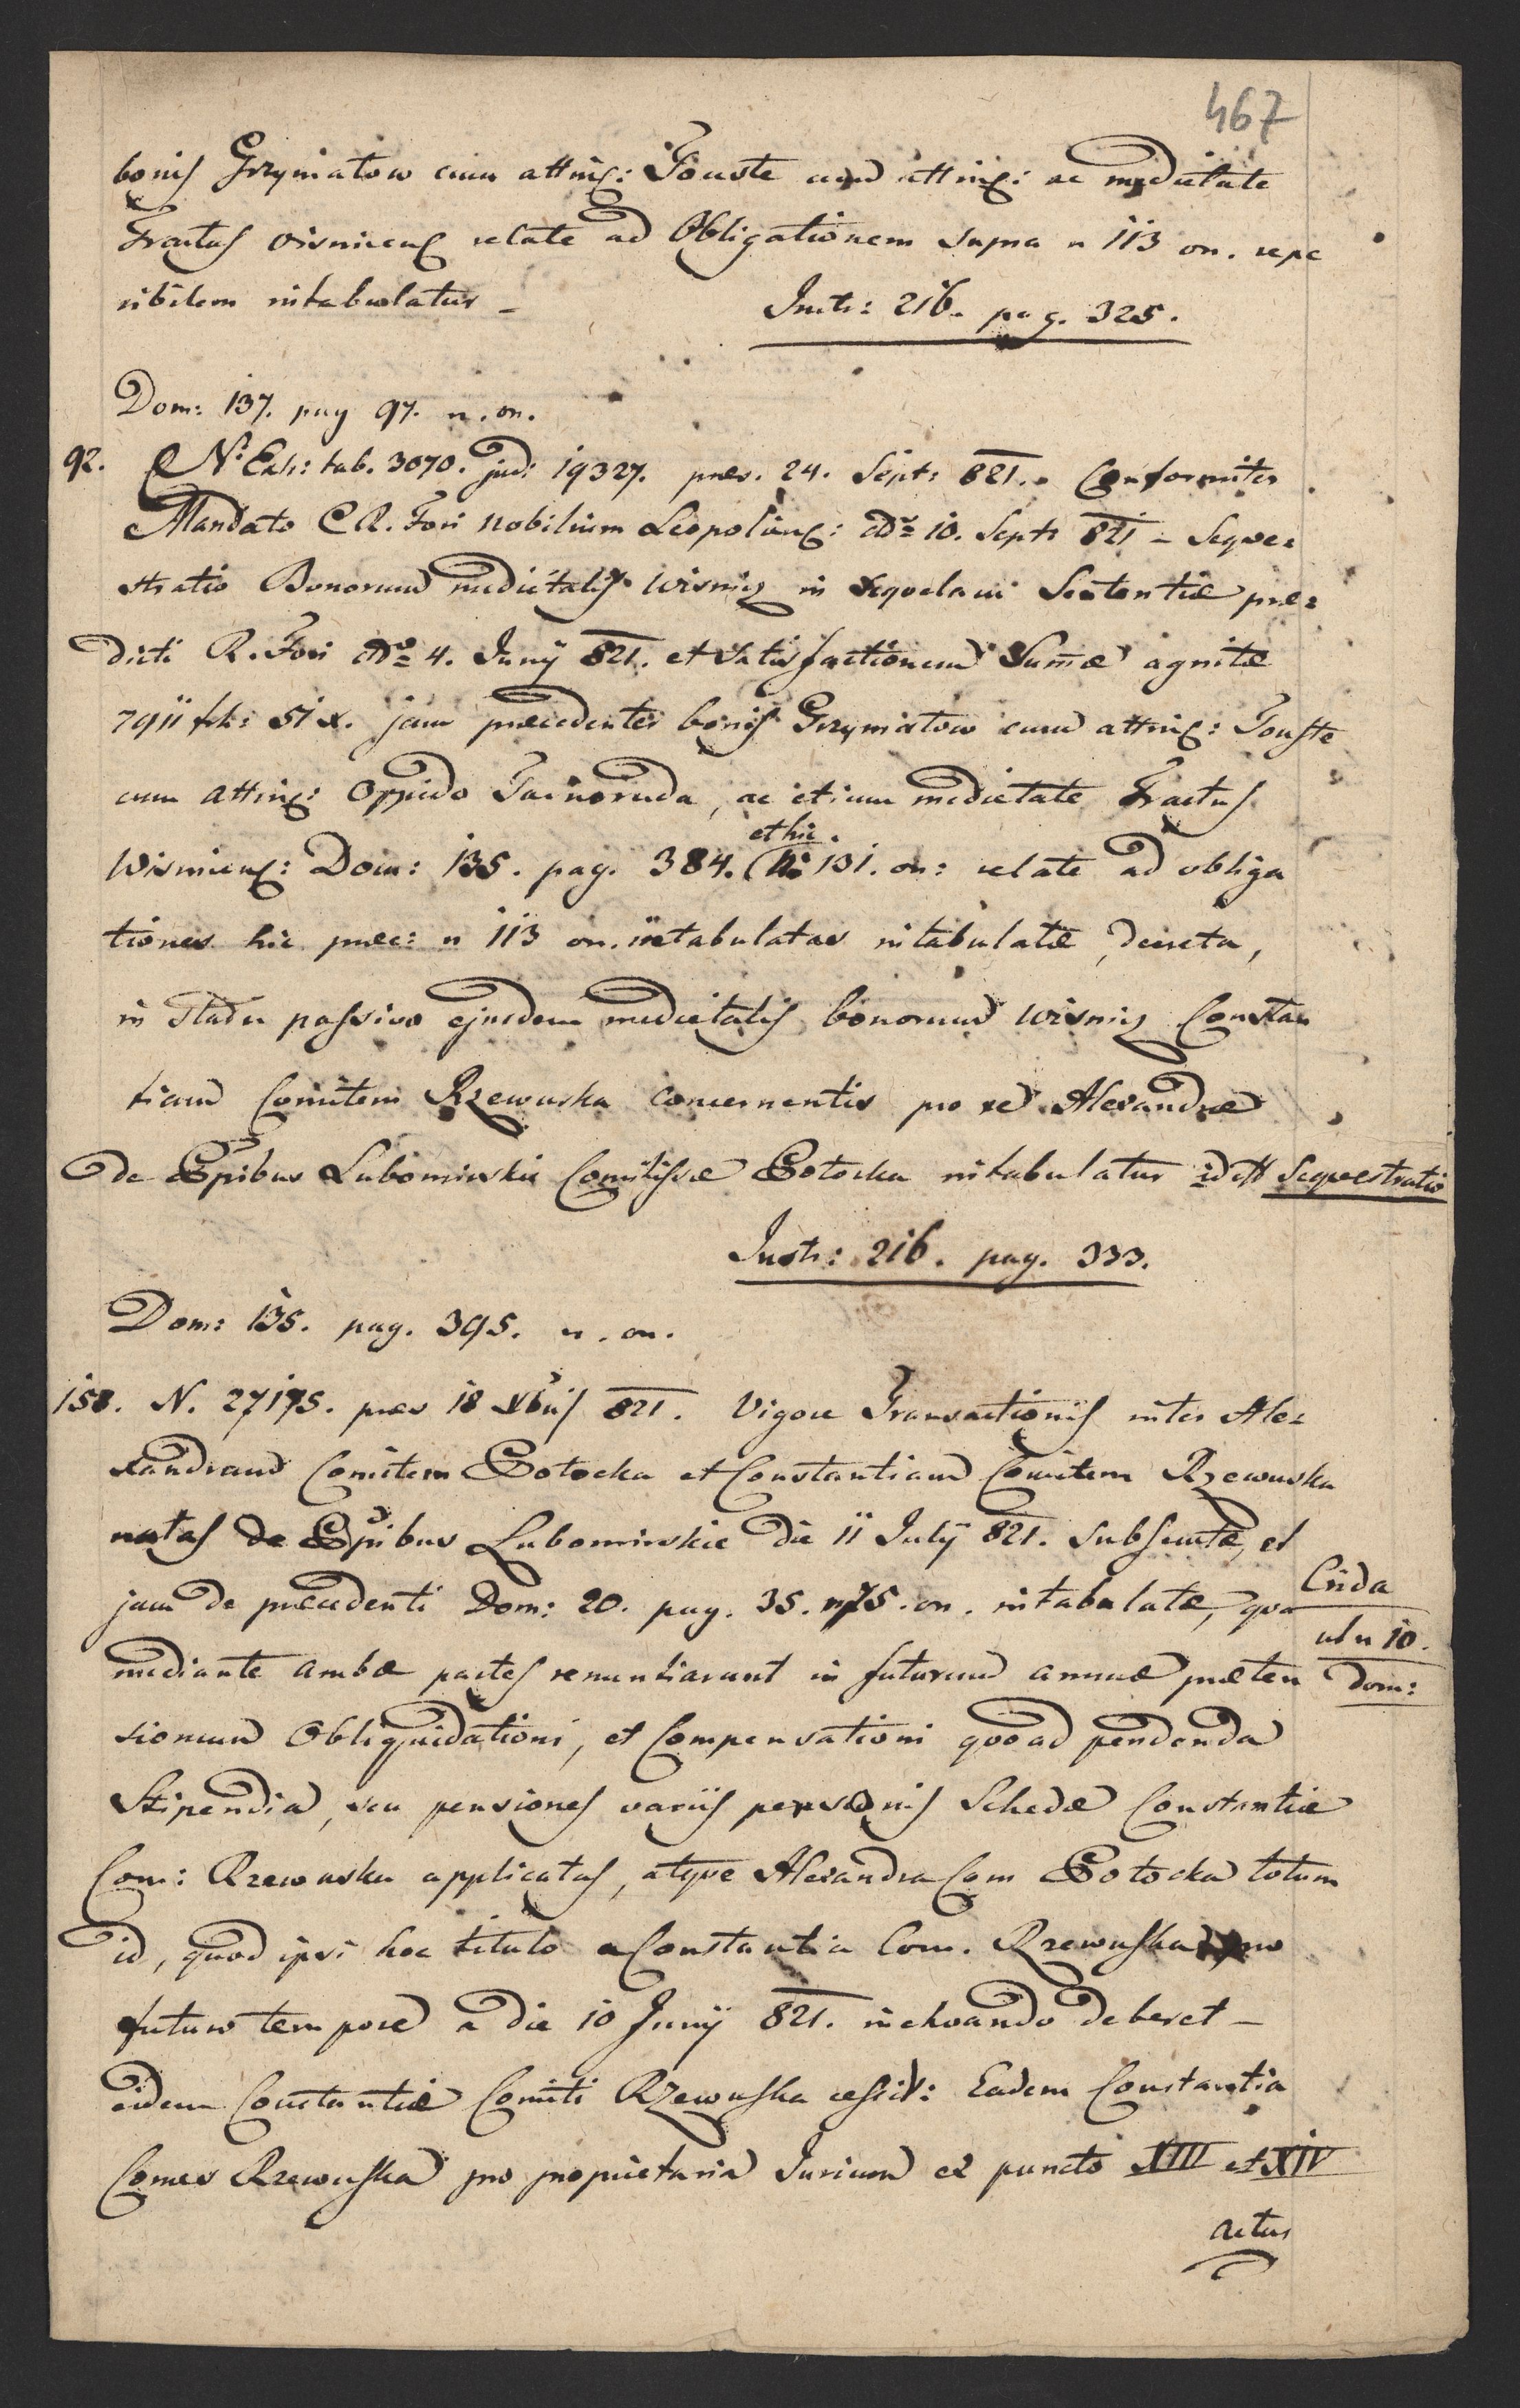 467
bonis Grzymatow cum atting: Touste cum atting: ac medietate
Tractus Wisniens relate ad Obligationem supra n 113 on. repe
ribilem intabulatur _
Instr: 216. pag. 325.
Dom: 137. pag 97. n. on.
92. N: Exh: tab. 3070. jud: 19327. præs. 24. Sept: 821. Conformiter
Mandato C R. Fori Nobilium Leopoliens: ddo 10. Sept: 821 - Seque=
stratio Bonorum medietatis Wisnicz in sequelam Sententiæ præ=
dicti R. Fori ddo 4. Junÿ 821. et satisfactionem Summæ agnitæ
7911 fr: 51 x. jam præcedenter bonis Grzymatow cum atting: Touste
cum atting: Oppido Tarnoruda, ac etiam medietate Tractus
Wisniens: Dom: 135. pag. 384. et hic. No 131. on: relate ad obliga
tiones hic præc: n 113 on. intabulatas intabulatæ, decreta,
in statu passivo ejusdem medietatis bonorum Wisnicz Constan
tiam Comitem Rzewuska concernentis pro re Alexandræ
de Ppibus Lubomirskie Comitissæ Potocka intabulatur id est Sequestratio
Instr: 216. pag. 333.
Dom: 135. pag. 395. n. on.
158. N. 27195. præs 18 Xbris 821. Vigore Transactionis inter Ale=
xandram Comitem Potocka et Constantiam Comitem Rzewuska
natas de Ppibus Lubomirskie die 11 Julÿ 821. subsecutæ, et
jam de præcedenti Dom: 20. pag. 35. n 75. on. intabulatæ, qva
Crida
ut n 10.
dom:
mediante ambæ partes renuntiarunt in futurum annuæ præten
sionum Obliquidationi, et Compensationi qvoad pendenda
Stipendia, seu pensiones variis personis Schedæ Constantiæ
Com: Rzewuska applicatas, atqve Alexandra Com Potocka totum
id, quod ipsi hoc titulo a Constantia Com. Rzewuska pro
futuro tempore a die 10 Junÿ 821. inchoando deberet _
eidem Constantiæ Comiti Rzewuska cessit: Eadem Constantia
Comes Rzewuska pro proprietaria Jurium ex puncto XIII et XIV
actus